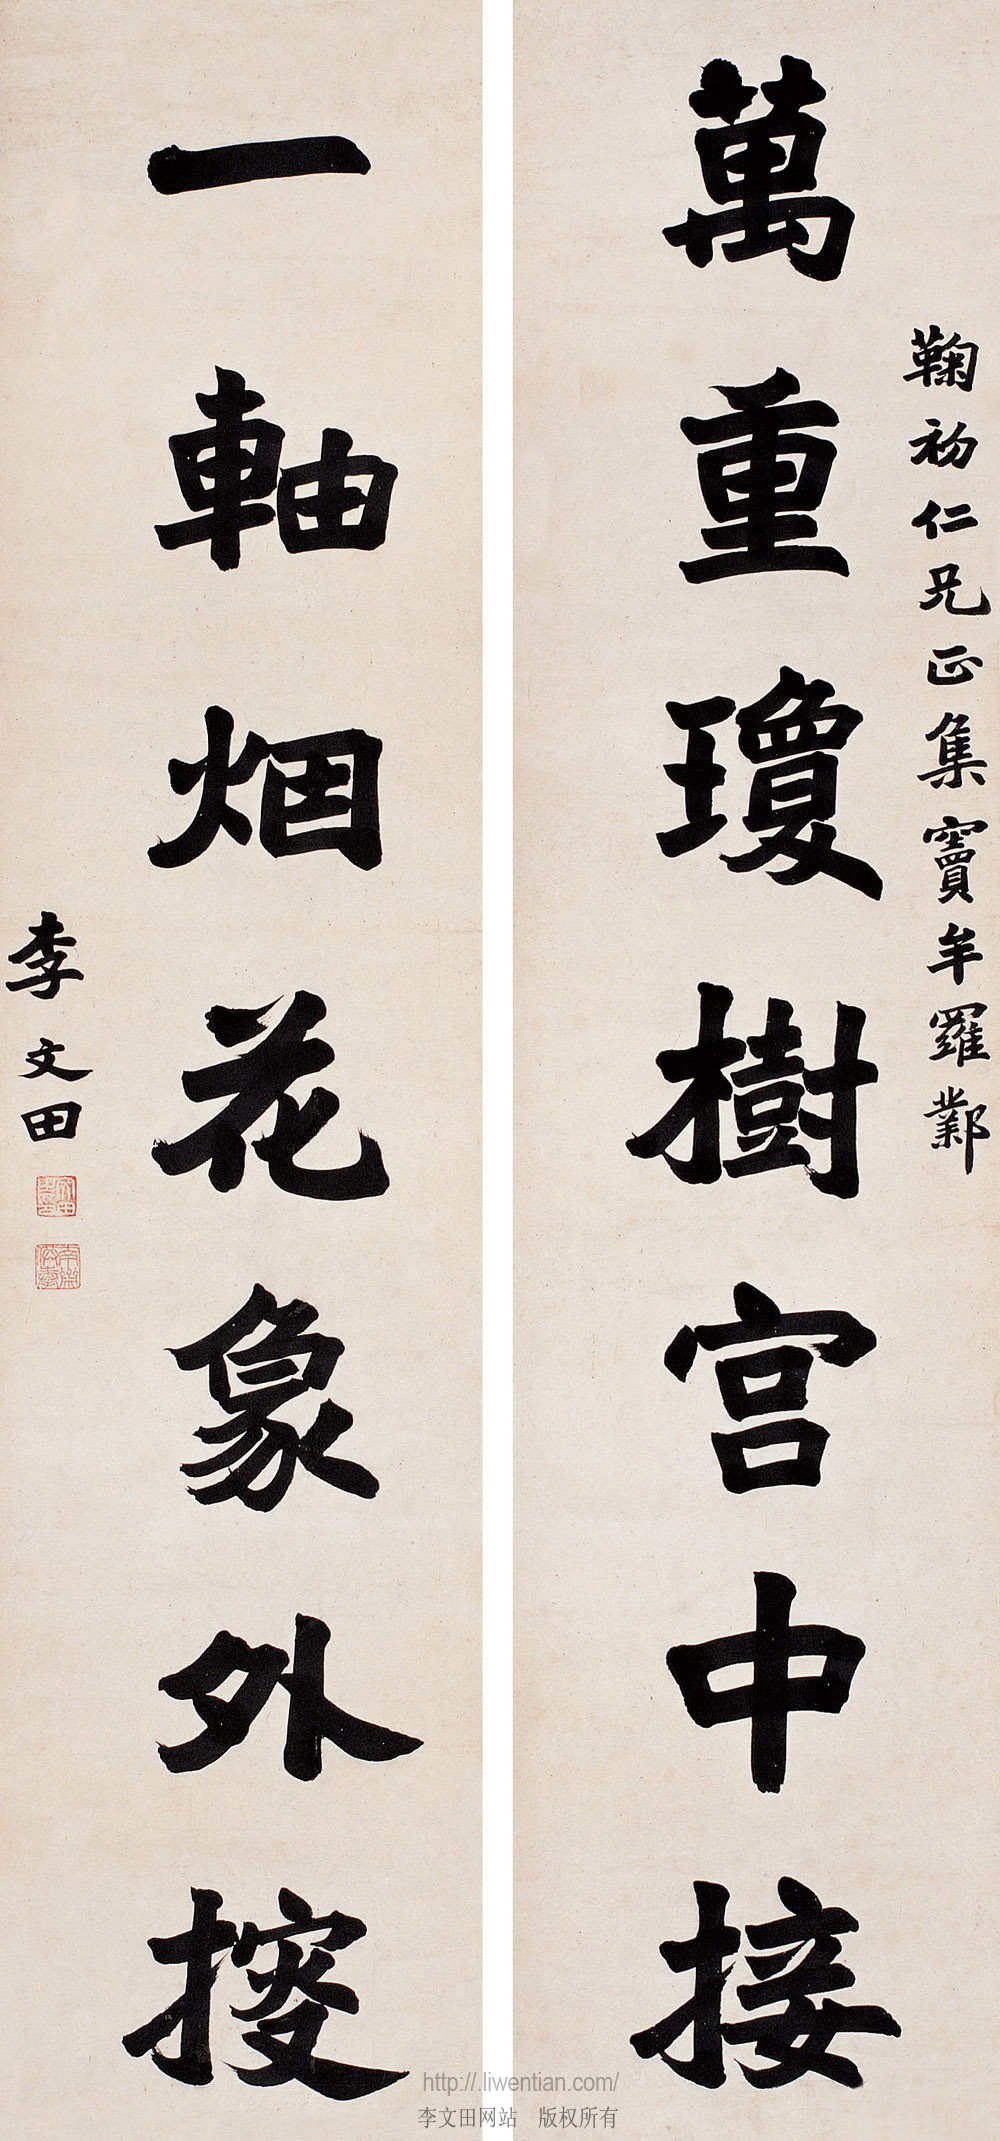 鞠初仁兄正集竇牟羅鄴
萬重瓊樹宫中接
一軸烟花象外搜
李文田
http://.liwentian.com/
李文田网站 版权所有